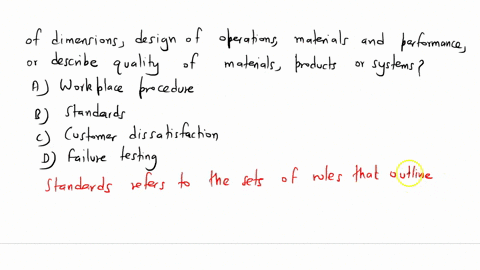 of dimensions, design of operations, materials and performance,
or describe quality of materials, products or systems?
A) Workplace procedure
B) Standards
C) Customer dissatisfaction
D) Failure testing
Standards refers to the sets of rules that outline